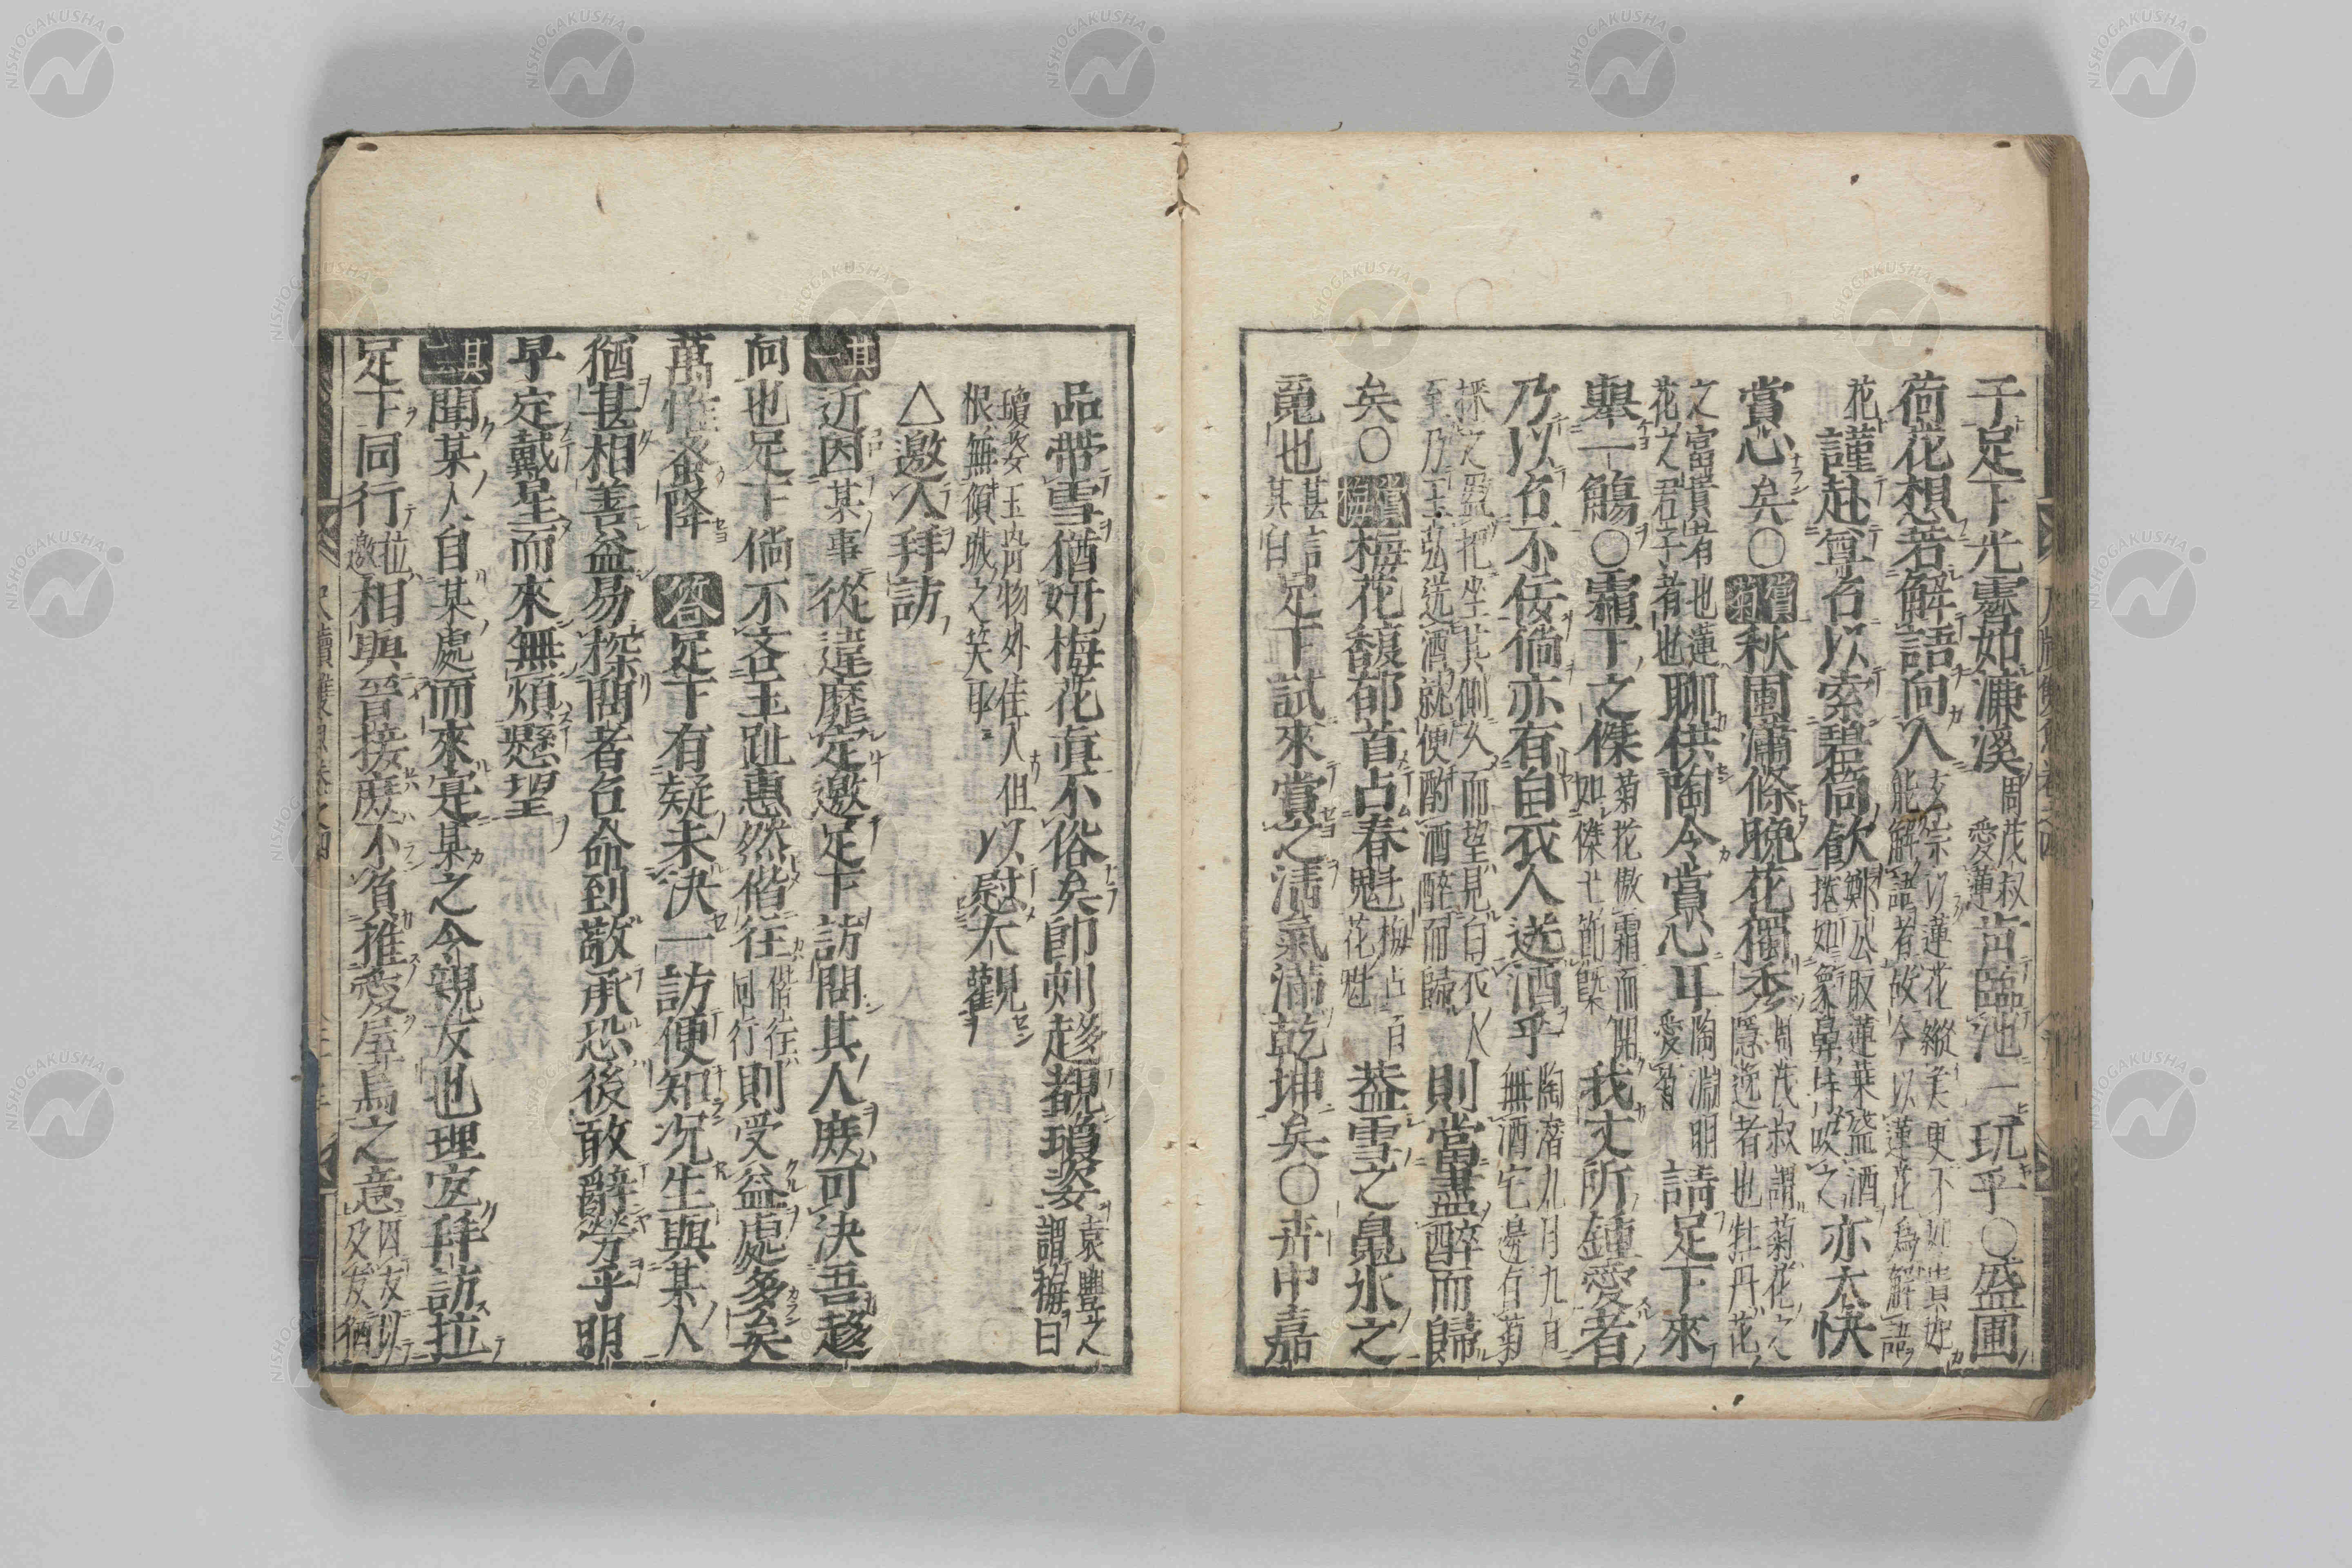 子足下光霽如濂溪周茂叔愛蓮肯臨池一玩乎○盛圃
荷花想若解語向人玄宗以蓮花縱美更不如貴妃能解語者故今以蓮花為解語
花謹赴尊召以索碧筒飲鄭公取蓮葉盛酒捲如象鼻持吸之亦太快
賞心矣○賞菊秋圃蕭條晚花獨秀周茂叔謂菊花之隱逸者也牡丹花
之富貴者也蓮花之君子者也聊供陶令賞心耳陶淵明愛菊請足下來
舉一觴○霜下之傑菊花傲霜而開如傑士節槩我丈所鍾愛者
乃以召不佞倘亦有白衣人送酒乎陶潛九月九日無酒宅邊有菊
採之盈把坐其側久而望見白衣人至乃王弘送酒就便酌酒醉而歸則當盡醉而歸
矣○賞梅梅花馥郁首占春魁梅占百花魁蓋雪之鳧氷之
甚言其白足下試來賞之清氣滿乾坤矣○卉中嘉
品帶雪猶妍梅花真不俗矣即刻趍觀瓊姿袁豐之謂梅曰
瓊姿玉骨物外佳人但恨無傾城之笑耳以慰大觀
△邀人拜訪
其一近因某事從違靡定邀足下訪問其人庶可決吾趍
向也足下倘不吝玉趾惠然偕往偕往同行則受益處多矣
萬惟俯降 答足下有疑未決一訪便知况生與某人
猶甚相善益易探聞者召命到敬承恐後敢辭勞乎明
早定戴星而來無煩懸望
其二聞某人自某處而來寔某之令親友也理宜拜訪拉
足下同行拉邀相與晉接庶不負推愛屋烏之意因友以及友猶